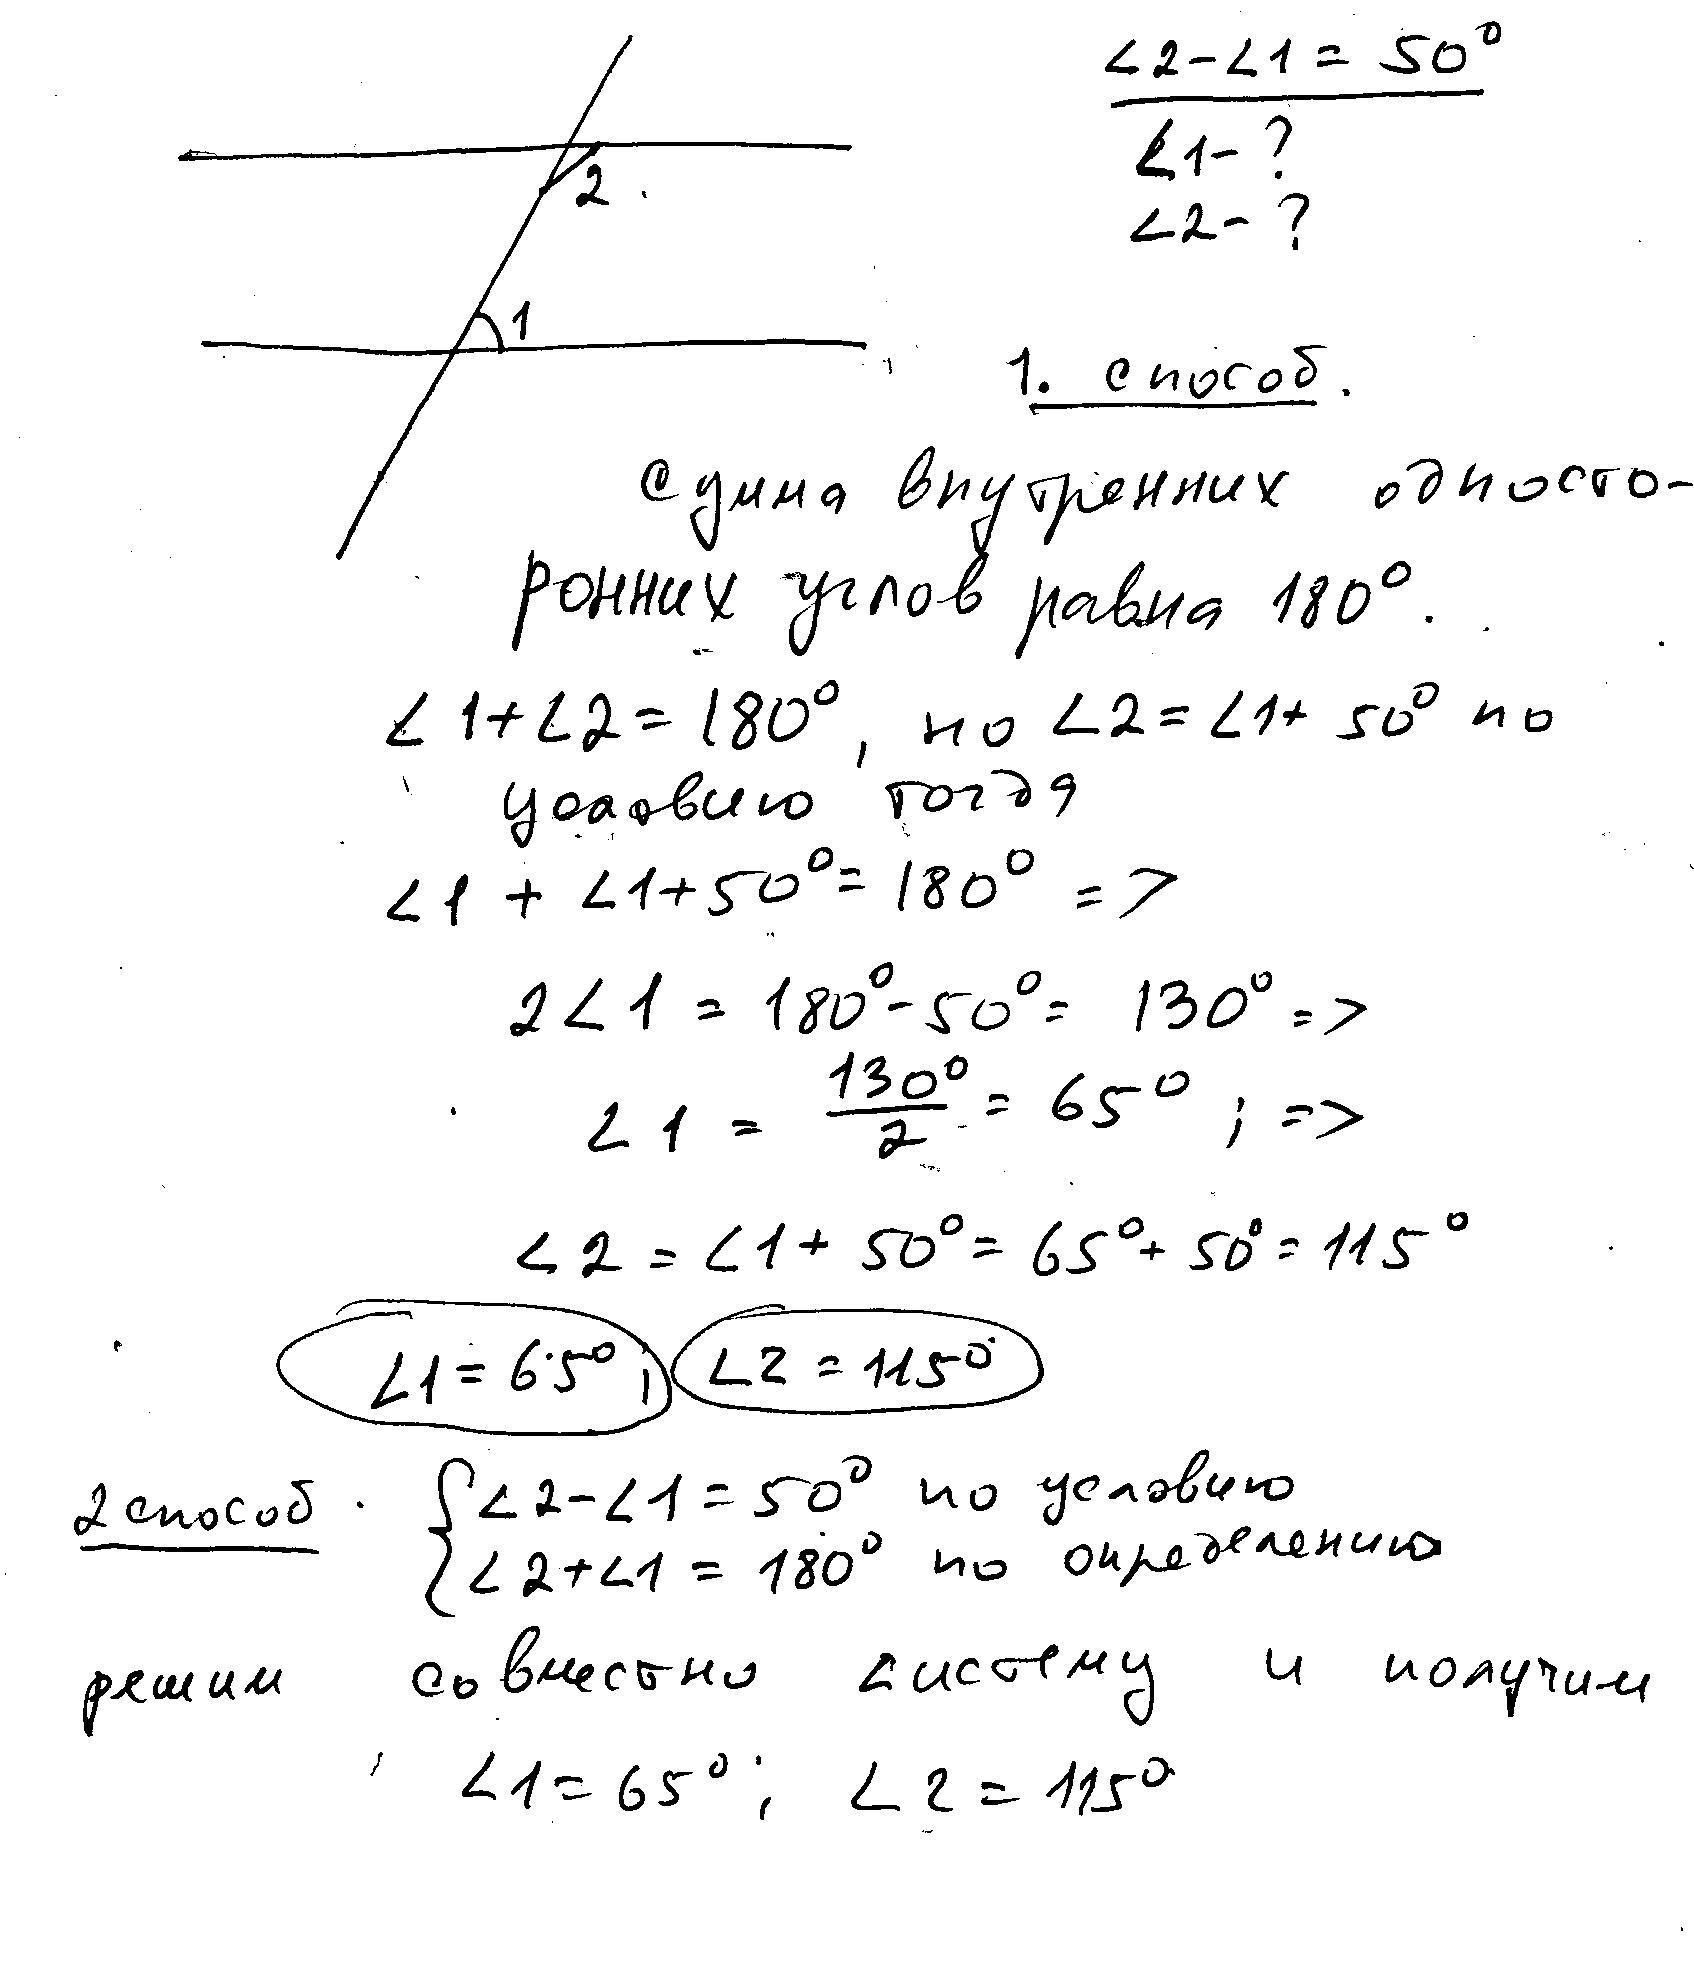 ∠2-∠1 = 50°
∠1-?
∠2-?
2
1
1. способ.
Сумма внутренних односто-
ронних углов равна 180°.
∠1+∠2=180°, но ∠2=∠1+50° по
условию тогда
∠1 + ∠1+50°=180° =>
2∠1 = 180°-50°= 130° =>
∠1 = 130°/2 = 65° ; =>
∠2 = ∠1+50°=65°+50°=115°
∠1=65°; ∠2=115°
2 способ. { ∠2-∠1=50° по условию
∠2+∠1=180° по определению
решим совместно систему и получим
∠1=65°; ∠2=115°